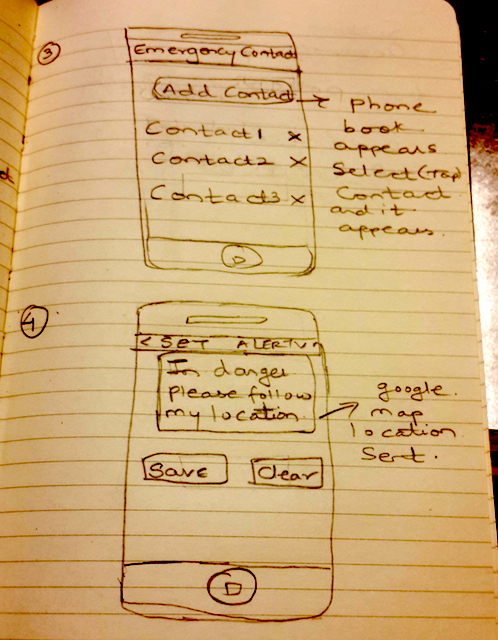 3
Emergency Contact
Add Contact
phone
book
appears
Select(Tap)
Contact
and it
appears.
Contact1 x
Contact2 x
Contact3 x
4
< SET ALERT
In danger
please follow
my location
google
map
location
Sent.
Save Clear